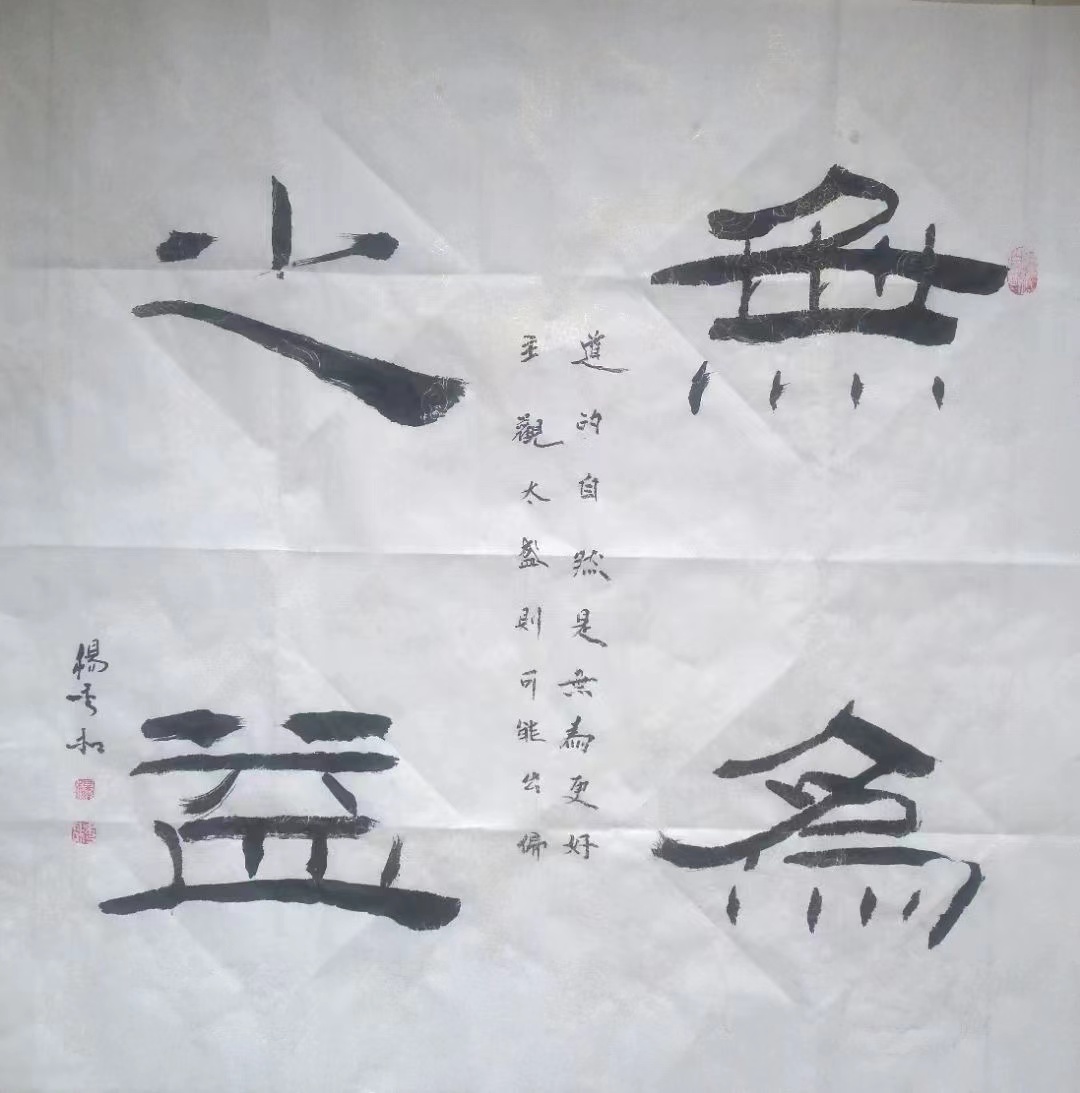 無為
之益
道的自然是無為更好
主觀太盛則可能出偏
楊雲和